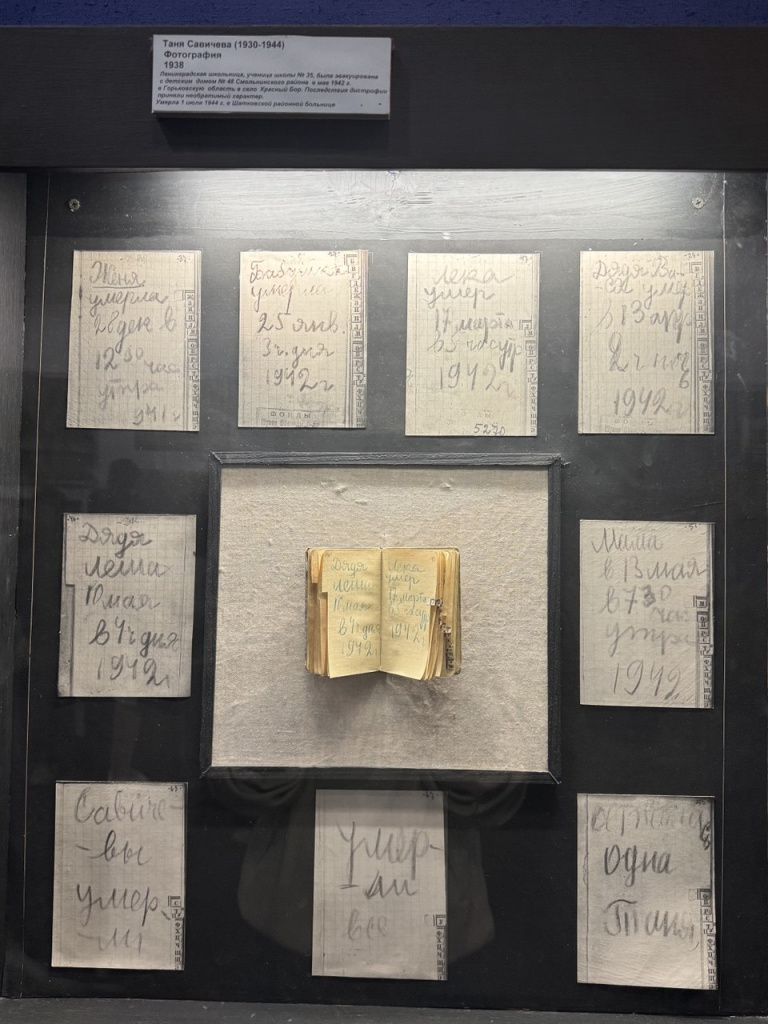 Таня Савичева (1930-1944)
Фотография
1938
Ленинградская школьница, ученица школы № 35, была эвакуирована
с детским домом № 48 Смольнинского района в мае 1942 г.
в Горьковскую область в село Красный Бор. Последствия дистрофии
приняли необратимый характер.
Умерла 1 июля 1944 г. в Шатковской районной больнице
Женя
умерла
28 дек в
12 30 час
утра
941 г
Бабушка
умерла
25 янв.
3 ч. дня
1942 г
ФОНДЫ
Лека
умер
17 марта
в 5 час утр
1942 г
5270
Дядя Ва-
ся умер
в 13 апр
2 ч ноч
1942 г
Дядя
Леша
10 мая
в 4 ч дня
1942 г
Дядя
Леша
10 мая
в 4 ч дня
1942 г
Лека
умер
17 марта
1942 г
Мама
в 13 мая
в 7 30
час
утра
1942
Савиче-
-вы
умер-
ли
умер-
-ли
все
одна
Таня